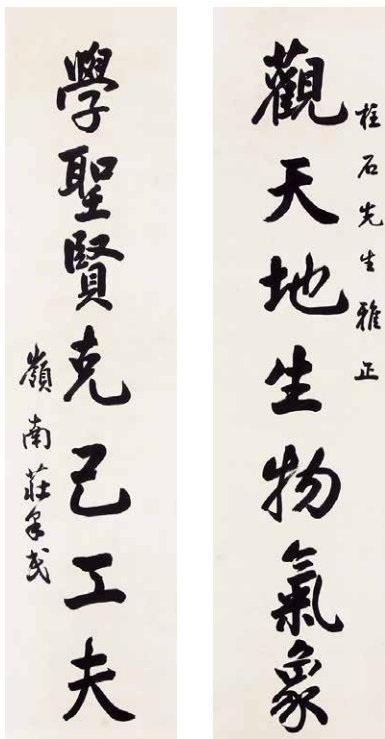 柱石先生雅正
觀天地生物氣象
學聖賢克己工夫
嶺南莊